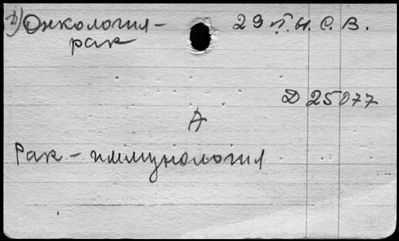 Онкология - 29 т. н. с. в.
рак
Д 25077
А
Рак - иммунология